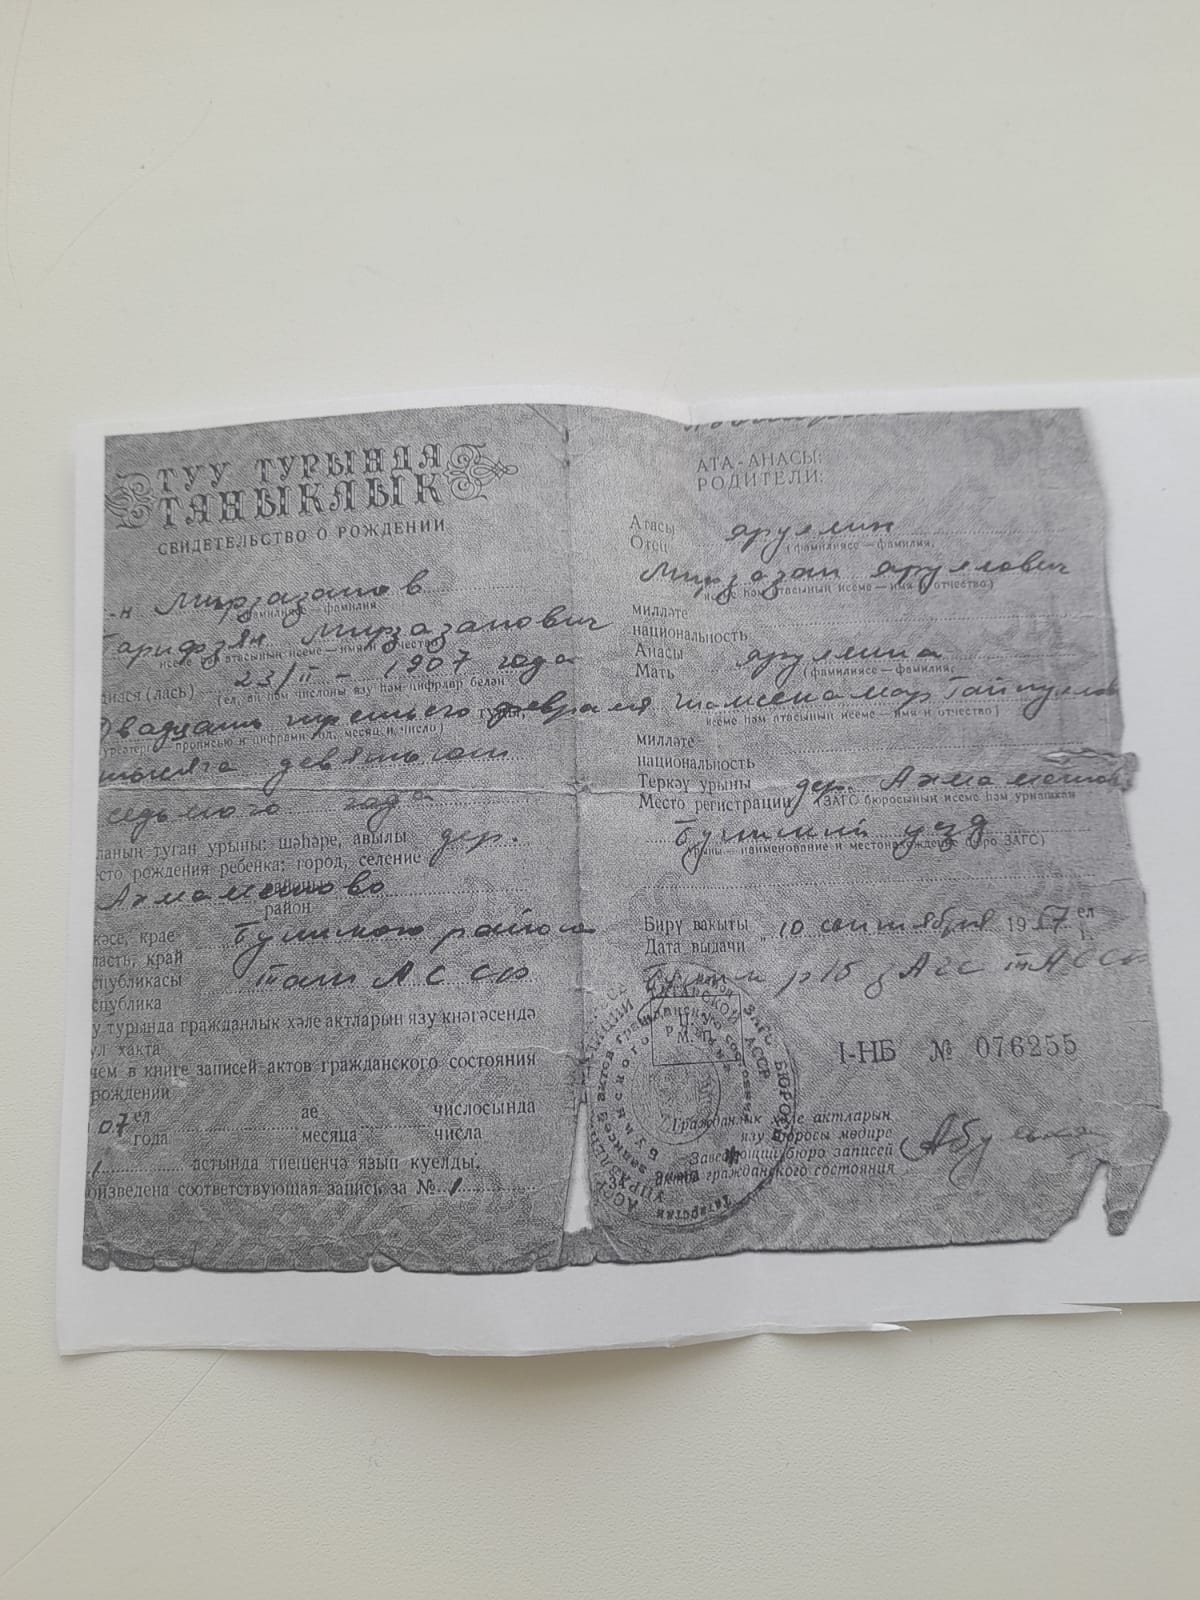 ТУУ ТУРЫНДА
ТАНЫКЛЫК
СВИДЕТЕЛЬСТВО О РОЖДЕНИИ
-н Мирзазанов
фамилиясе — фамилия
Гарифзян Мирзазанович
исеме һәм атасының исеме — имя и отчество
дился (лась) 23/II – 1907 года
(ел, ай һәм числоны язу һәм цифрлар белән
Двадцать третьего февраля
прописью и цифрами год, месяц и число)
тысяча девятьсот
седьмого года
ланың туган урыны: шәһәре, авылы дер.
сто рождения ребенка: город, селение
Ахмаметово
район
кәсе, крае Буинского района
ласть, край
спубликасы Тат АССР
спублика
у турында гражданлык хәле актларын язу кнәгәсендә
ул хакта
чем в книге записей актов гражданского состояния
рождении
07 ел ае числосында
года месяца числа
1 астында тиешенчә язып куелды.
оизведена соответствующая запись за № 1
АТА-АНАСЫ:
РОДИТЕЛИ:
Атасы Яруллин
Отец (фамилиясе — фамилия)
Мирзазан Яруллович
исеме һәм атасының исеме — имя и отчество)
милләте
национальность
Анасы Яруллина
Мать (фамилиясе — фамилия)
исеме һәм атасының исеме — имя и отчество)
милләте
национальность
Теркәү урыны дер. Ахмаметов
Место регистрации (ЗАГС бюросының исеме һәм урнашкан
Буинский уезд
урыны — наименование и местонахождение бюро ЗАГС)
Бирү вакыты 10 сентября 1967 ел
Дата выдачи г.
Буин р/б ЗАГС ТАССР
М. П.
I-НБ № 076255
Гражданлык хәле актларын
язу бюросы мөдире
Заведующий бюро записей
актов гражданского состояния